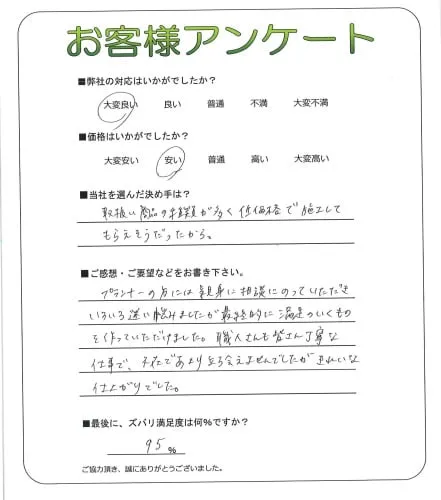 お客様アンケート
■弊社の対応はいかがでしたか？
大変良い 良い 普通 不満 大変不満
■価格はいかがでしたか？
大変安い 安い 普通 高い 大変高い
■当社を選んだ決め手は？
取扱い商品の種類が多く低価格で施工して
もらえそうだったから。
■ご感想・ご要望などをお書き下さい。
プランナーの方には親身に相談にのっていただき
いろいろ迷い悩みましたが最終的に満足のいくもの
を作っていただけました。職人さんも皆さん丁寧な
仕事で、不在であまり立ち会えませんでしたがきれいな
仕上がりでした。
■最後に、ズバリ満足度は何%ですか？
95%
ご協力頂き、誠にありがとうございました。